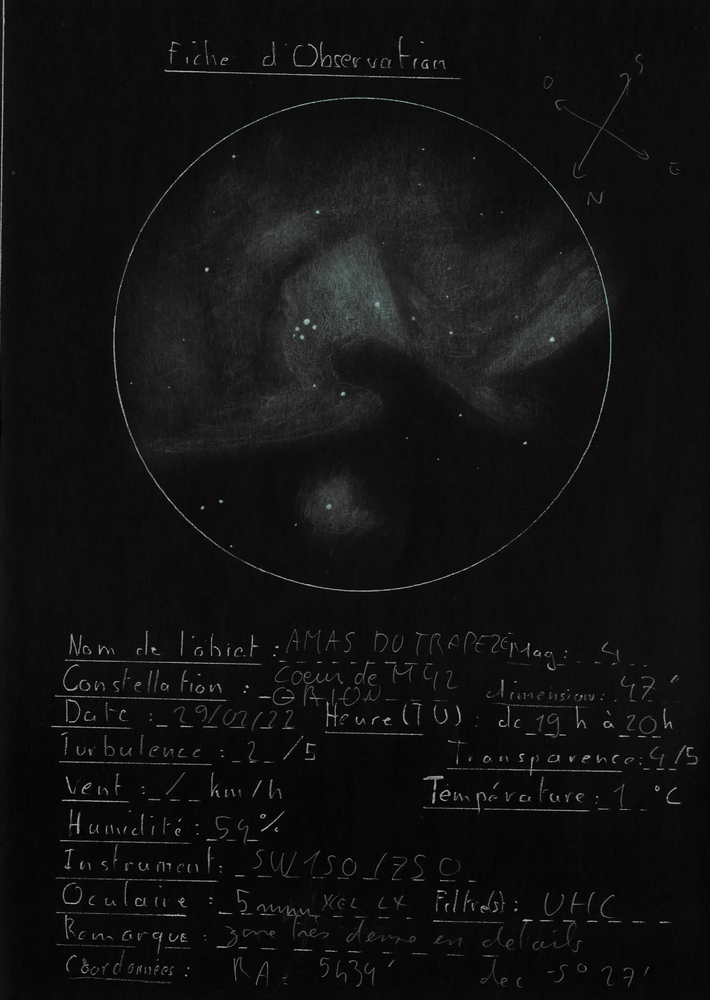 Fiche d'Observation
S
O
E
N
Nom de l'objet : AMAS DU TRAPEZE Mag: 4
Coeur de M42
Constellation : ORION dimension: 47'
Date : 29/01/22 Heure (TU) : de 19 h à 20 h
Turbulence : 2 /5 Transparence: 4/5
Vent : / km/h Température : 1 °C
Humidité : 59 %
Instrument : SW 150 / 750
Oculaire : 5 mm XCEL LX Filtre(s) : UHC
Remarque : zone très dense en détails
Coordonnées : RA : 5h39' dec -5° 27'